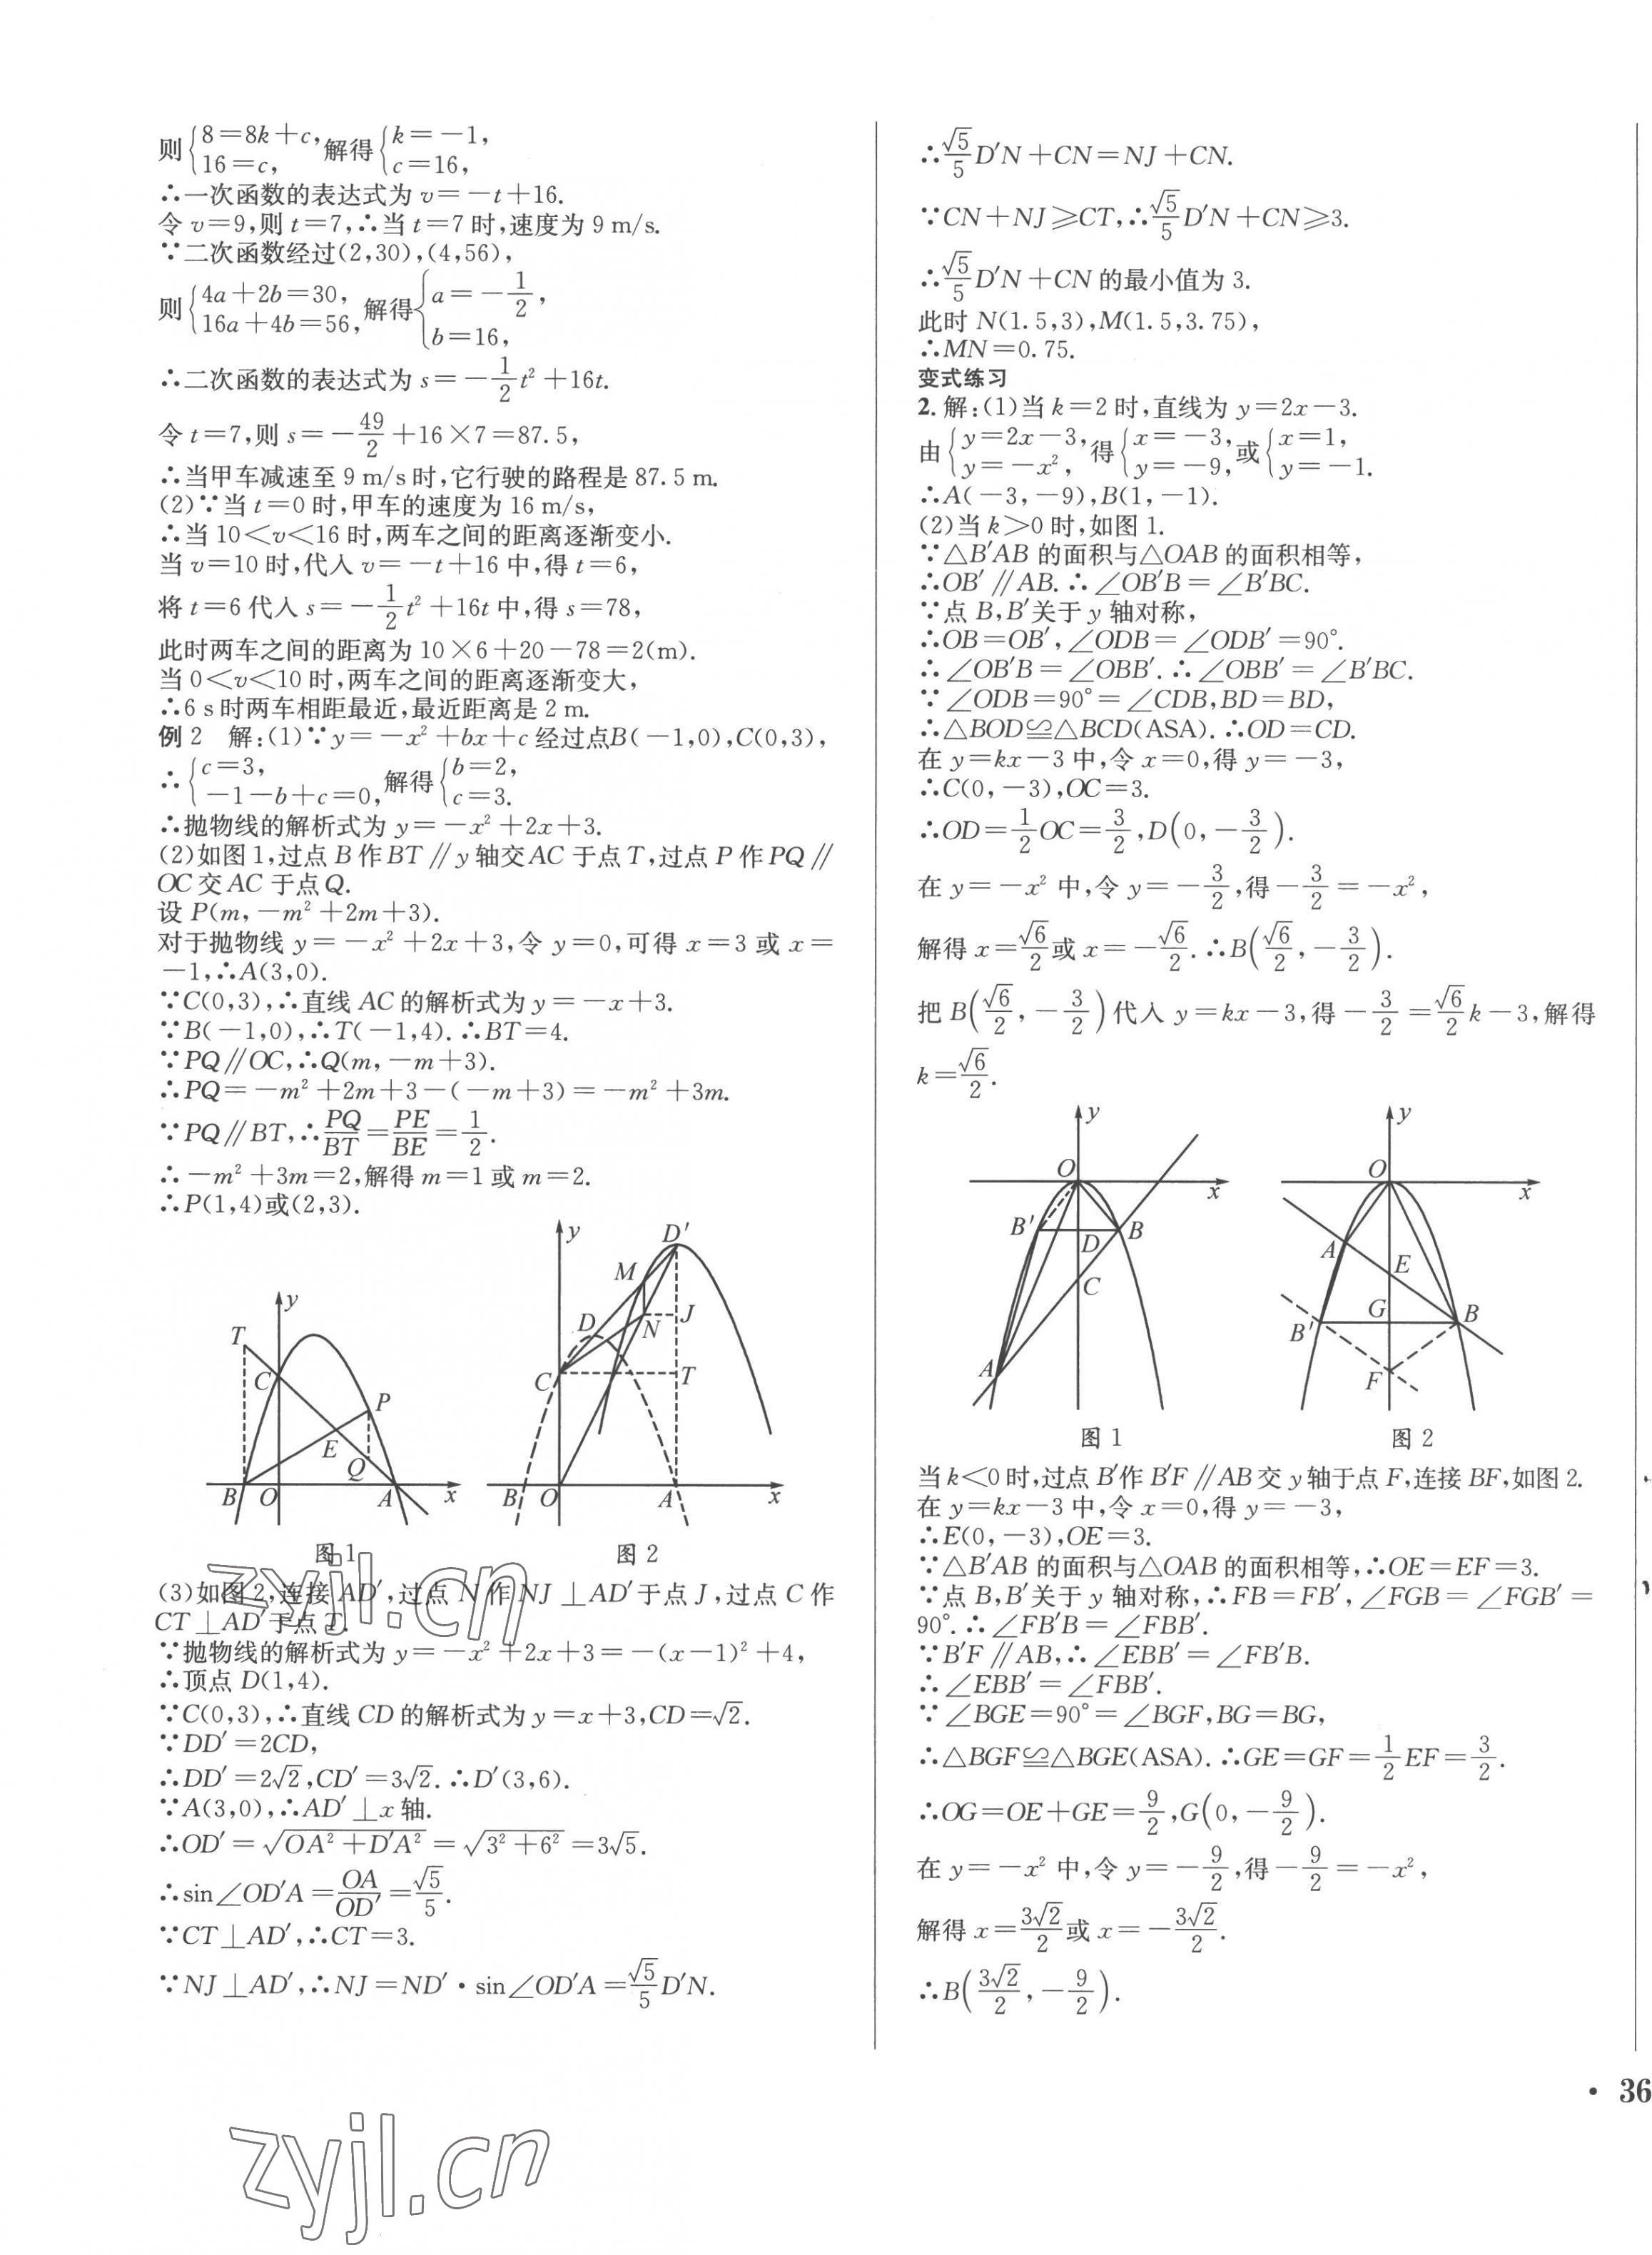 则{8=8k+c, 16=c, 解得{k=-1, c=16,
∴一次函数的表达式为 v=-t+16.
令 v=9,则 t=7,∴当 t=7 时,速度为 9 m/s.
∵二次函数经过(2,30),(4,56),
则{4a+2b=30, 16a+4b=56, 解得{a=-1/2, b=16,
∴二次函数的表达式为 s=-1/2t²+16t.
令 t=7,则 s=-49/2+16×7=87.5,
∴当甲车减速至 9 m/s 时,它行驶的路程是 87.5 m.
(2)∵当 t=0 时,甲车的速度为 16 m/s,
∴当 10<v<16 时,两车之间的距离逐渐变小.
当 v=10 时,代入 v=-t+16 中,得 t=6,
将 t=6 代入 s=-1/2t²+16t 中,得 s=78,
此时两车之间的距离为 10×6+20-78=2(m).
当 0<v<10 时,两车之间的距离逐渐变大,
∴6 s 时两车相距最近,最近距离是 2 m.
例 2 解:(1)∵y=-x²+bx+c 经过点B(-1,0),C(0,3),
∴{c=3, -1-b+c=0, 解得{b=2, c=3.
∴抛物线的解析式为 y=-x²+2x+3.
(2)如图 1,过点 B 作 BT∥y 轴交 AC 于点 T,过点 P 作 PQ∥
OC 交 AC 于点 Q.
设 P(m,-m²+2m+3).
对于抛物线 y=-x²+2x+3,令 y=0,可得 x=3 或 x=
-1,∴A(3,0).
∵C(0,3),∴直线 AC 的解析式为 y=-x+3.
∵B(-1,0),∴T(-1,4).∴BT=4.
∵PQ∥OC,∴Q(m,-m+3).
∴PQ=-m²+2m+3-(-m+3)=-m²+3m.
∵PQ∥BT,∴PQ/BT=PE/BE=1/2.
∴-m²+3m=2,解得 m=1 或 m=2.
∴P(1,4)或(2,3).
y T C P E Q B O A x
图 1
y D′ M D N J C T B O A x
图 2
(3)如图 2,连接 AD′,过点 N 作 NJ⊥AD′于点 J,过点 C 作
CT⊥AD′于点 T.
∵抛物线的解析式为 y=-x²+2x+3=-(x-1)²+4,
∴顶点 D(1,4).
∵C(0,3),∴直线 CD 的解析式为 y=x+3,CD=√2.
∵DD′=2CD,
∴DD′=2√2,CD′=3√2.∴D′(3,6).
∵A(3,0),∴AD′⊥x 轴.
∴OD′=√(OA²+D′A²)=√(3²+6²)=3√5.
∴sin∠OD′A=OA/OD′=√5/5.
∵CT⊥AD′,∴CT=3.
∵NJ⊥AD′,∴NJ=ND′·sin∠OD′A=√5/5D′N.
∴√5/5D′N+CN=NJ+CN.
∵CN+NJ≥CT,∴√5/5D′N+CN≥3.
∴√5/5D′N+CN 的最小值为 3.
此时 N(1.5,3),M(1.5,3.75),
∴MN=0.75.
变式练习
2. 解:(1)当 k=2 时,直线为 y=2x-3.
由{y=2x-3, y=-x², 得{x=-3, y=-9, 或{x=1, y=-1.
∴A(-3,-9),B(1,-1).
(2)当 k>0 时,如图 1.
∵△B′AB 的面积与△OAB 的面积相等,
∴OB′∥AB.∴∠OB′B=∠B′BC.
∵点 B,B′关于 y 轴对称,
∴OB=OB′,∠ODB=∠ODB′=90°.
∴∠OB′B=∠OBB′.∴∠OBB′=∠B′BC.
∵∠ODB=90°=∠CDB,BD=BD,
∴△BOD≌△BCD(ASA).∴OD=CD.
在 y=kx-3 中,令 x=0,得 y=-3,
∴C(0,-3),OC=3.
∴OD=1/2OC=3/2,D(0,-3/2).
在 y=-x² 中,令 y=-3/2,得-3/2=-x²,
解得 x=√6/2或 x=-√6/2.∴B(√6/2,-3/2).
把 B(√6/2,-3/2)代入 y=kx-3,得-3/2=√6/2k-3,解得
k=√6/2.
y O x B′ D B C A
图 1
y O x A E G B B′ F
图 2
当 k<0 时,过点 B′作 B′F∥AB 交 y 轴于点 F,连接 BF,如图 2.
在 y=kx-3 中,令 x=0,得 y=-3,
∴E(0,-3),OE=3.
∵△B′AB 的面积与△OAB 的面积相等,∴OE=EF=3.
∵点 B,B′关于 y 轴对称,∴FB=FB′,∠FGB=∠FGB′=
90°.∴∠FB′B=∠FBB′.
∵B′F∥AB,∴∠EBB′=∠FB′B.
∴∠EBB′=∠FBB′.
∵∠BGE=90°=∠BGF,BG=BG,
∴△BGF≌△BGE(ASA).∴GE=GF=1/2EF=3/2.
∴OG=OE+GE=9/2,G(0,-9/2).
在 y=-x² 中,令 y=-9/2,得-9/2=-x²,
解得 x=3√2/2或 x=-3√2/2.
∴B(3√2/2,-9/2).
· 36
zyjl.cn
zyjl.cn